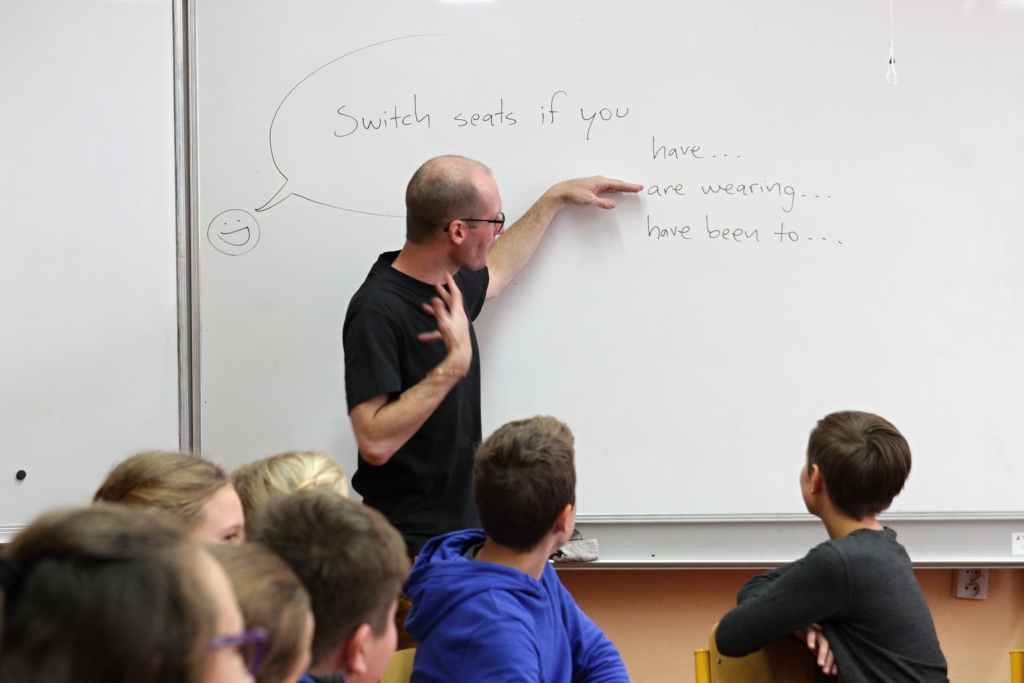 Switch seats if you
have...
are wearing...
have been to....